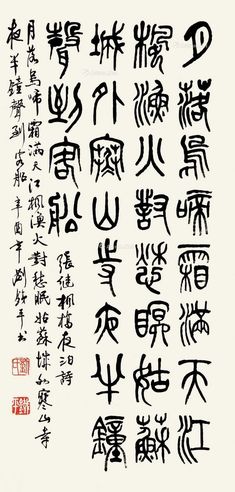 月落烏啼霜滿天江
楓漁火對愁眠姑蘇
城外寒山寺夜半鐘
聲到客船
張繼楓橋夜泊詩
月落烏啼霜滿天江楓漁火對愁眠姑蘇城外寒山寺
夜半鐘聲到客船 辛酉年劉平书